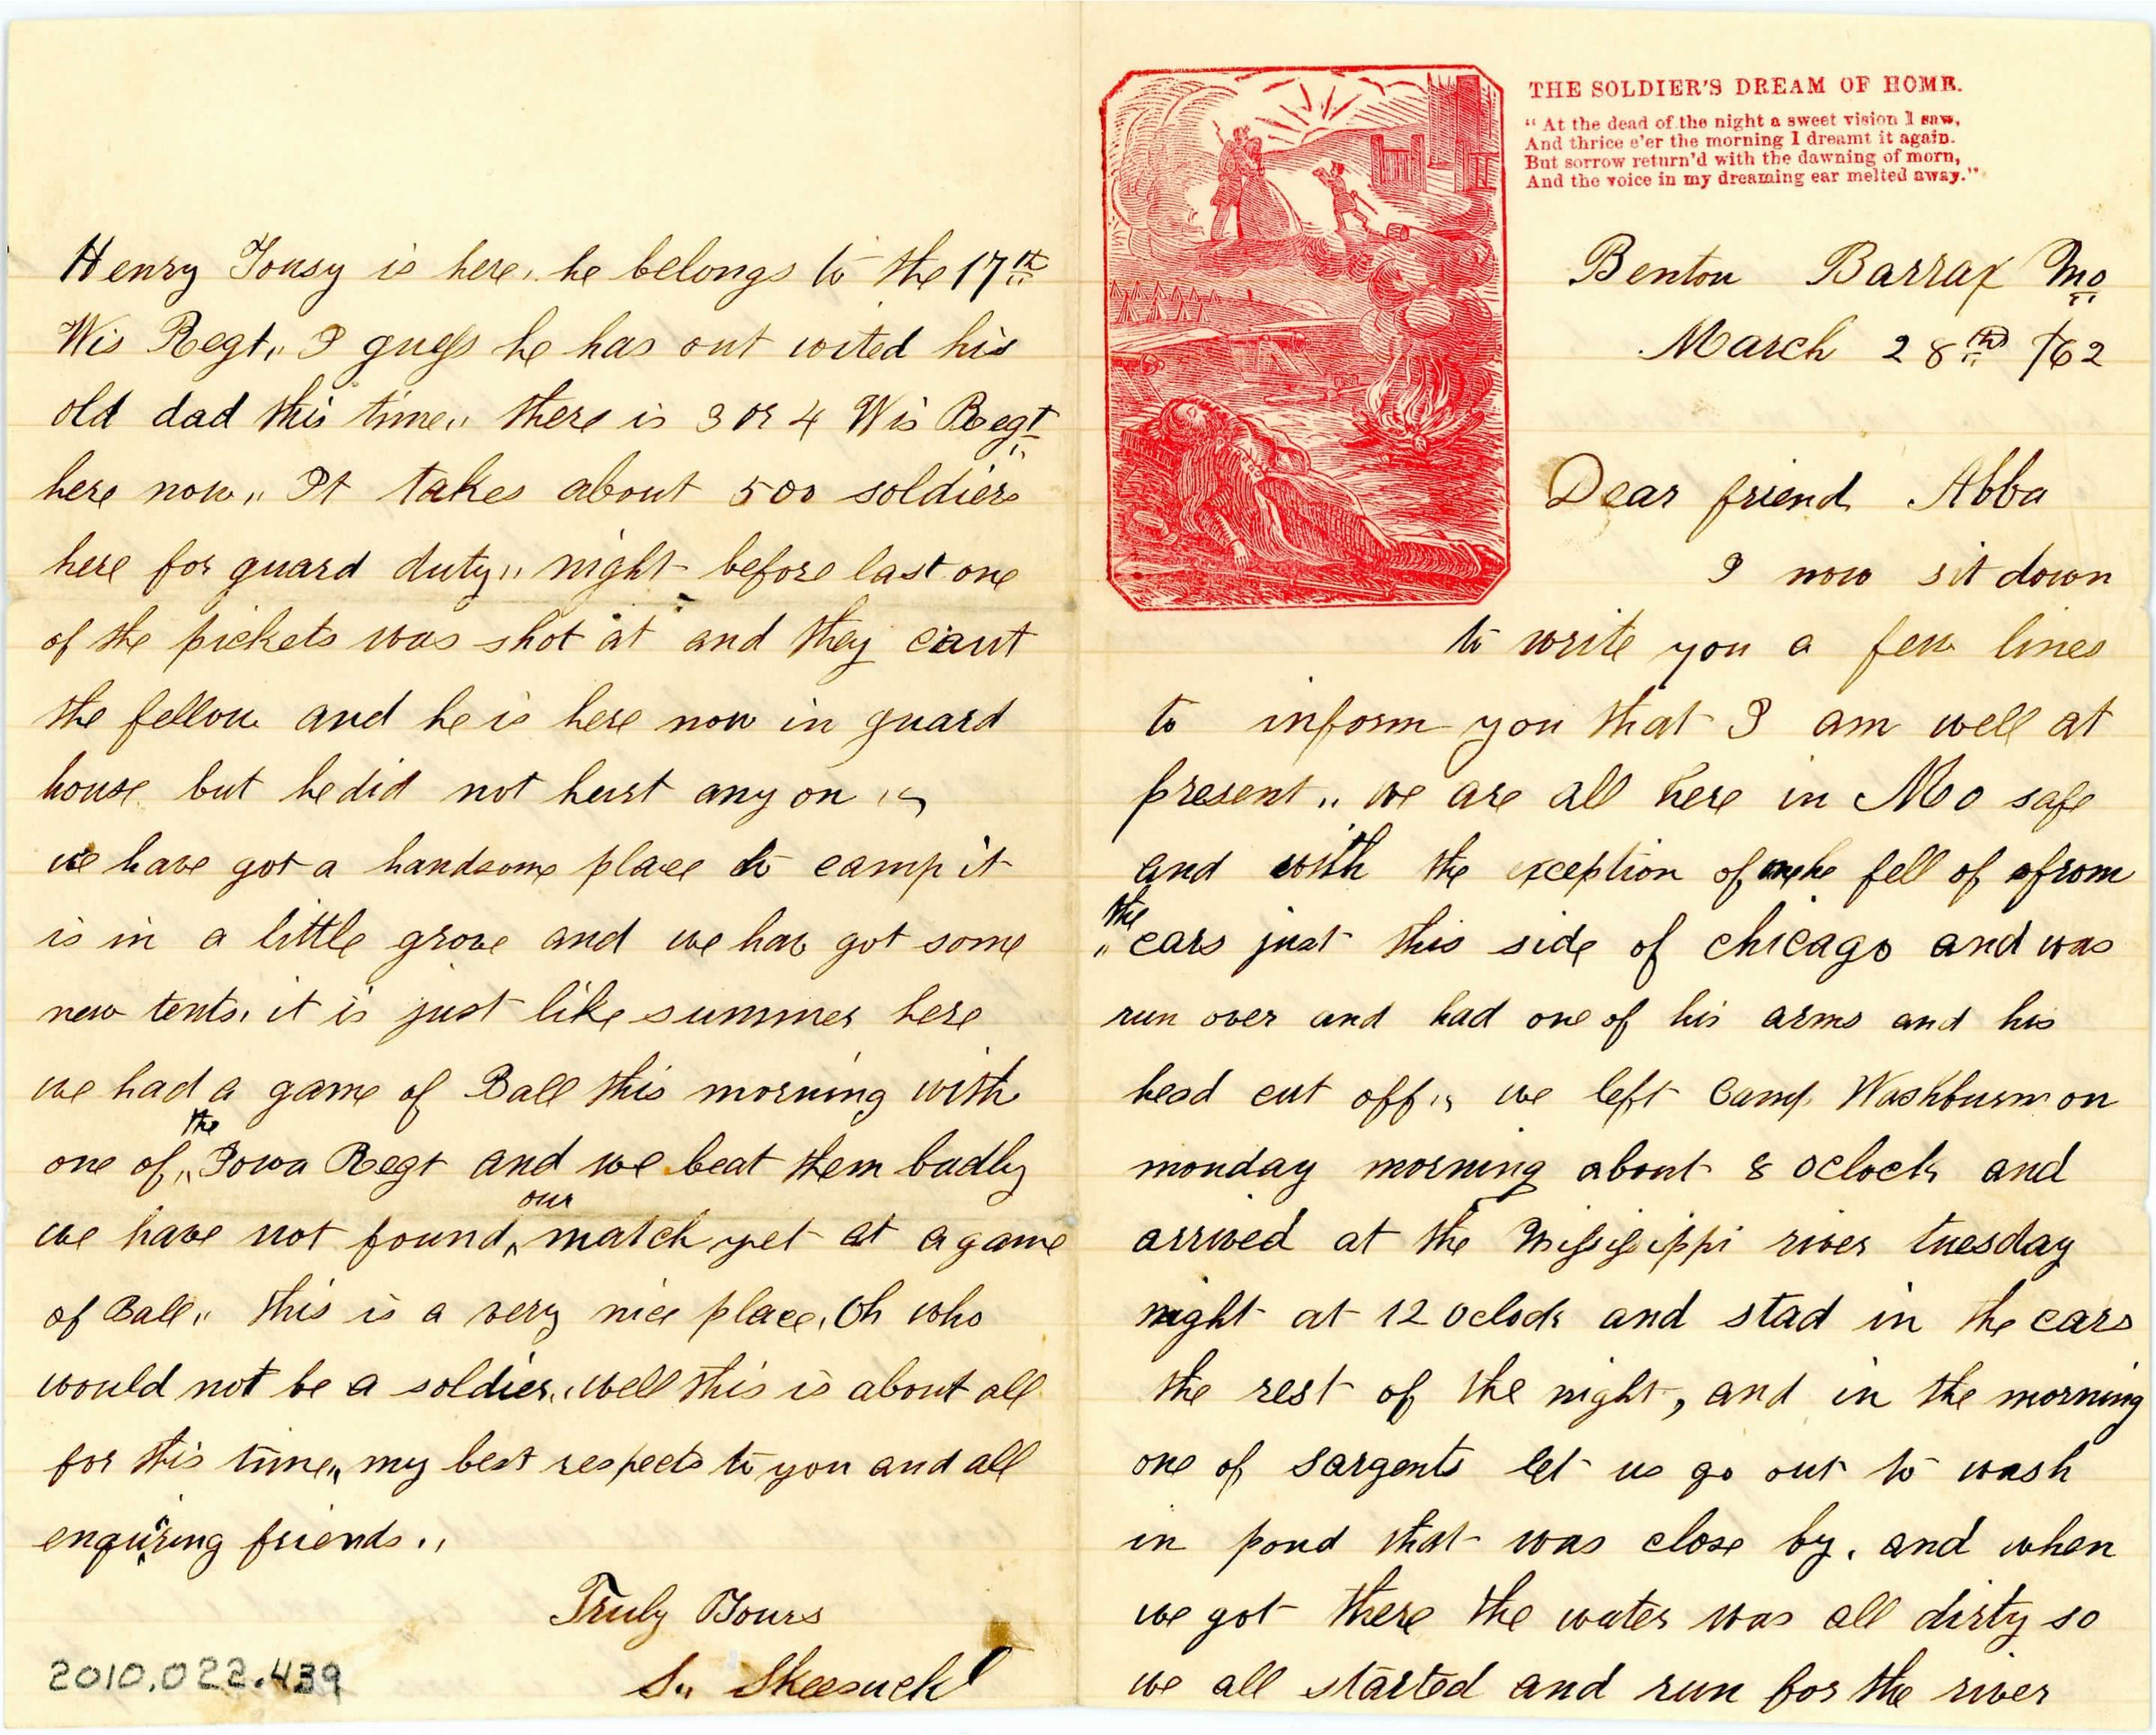 THE SOLDIER'S DREAM OF HOME.
"At the dead of the night a sweet vision I saw,
And thrice e'er the morning I dreamt it again.
But sorrow return'd with the dawning of morn,
And the voice in my dreaming ear melted away."
Benton Barrax Mo
March 28th /62
Dear friend Abba
I now sit down
to write you a few lines
to inform you that I am well at
present,, we are all here in Mo safe
and with the exception of one he fell of from
the
,, cars just this side of chicago and was
run over and had one of his arms and his
head cut off,, we left Camp Washburn on
monday morning about 8 oclock and
arrived at the Missisippi river tuesday
night at 12 oclock and stad in the cars
the rest of the night, and in the morning
one of sargents let us go out to wash
in pond that was close by. and when
we got there the water was all dirty so
we all started and run for the river
Henry Tousy is here, he belongs to the 17th
Wis Regt,, I guess he has out wited his
old dad this time,, there is 3 or 4 Wis Regt
here now,, It takes about 500 soldiers
here for guard duty,, night before last one
of the pickets was shot at and they caut
the fellow and he is here now in guard
house but he did not hurt any on ,,
we have got a handsome place to camp it
is in a little grove and we hav got some
new tents, it is just like summer here
we had a game of Ball this morning with
the
one of ,, Iowa Regt and we beat them badly
our
we have not found ,, match yet at a game
of Ball,, this is a very nice place, Oh who
would not be a soldier,, well this is about all
for this time,, my best respects to you and all
enquiring friends.,
Truly Yours
S,, Skeesuck
2010.022.439